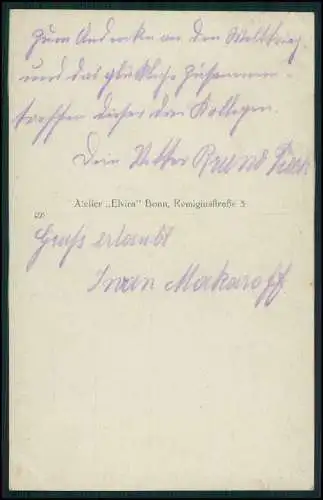 Zum Andenken an den Weltkrieg
und das glückliche Zusammen-
treffen dieser drei Kollegen.
Dein Vetter
Atelier „Elvira" Bonn, Remigiusstraße 3
Gruß erlaubt
Iwan Makaroff